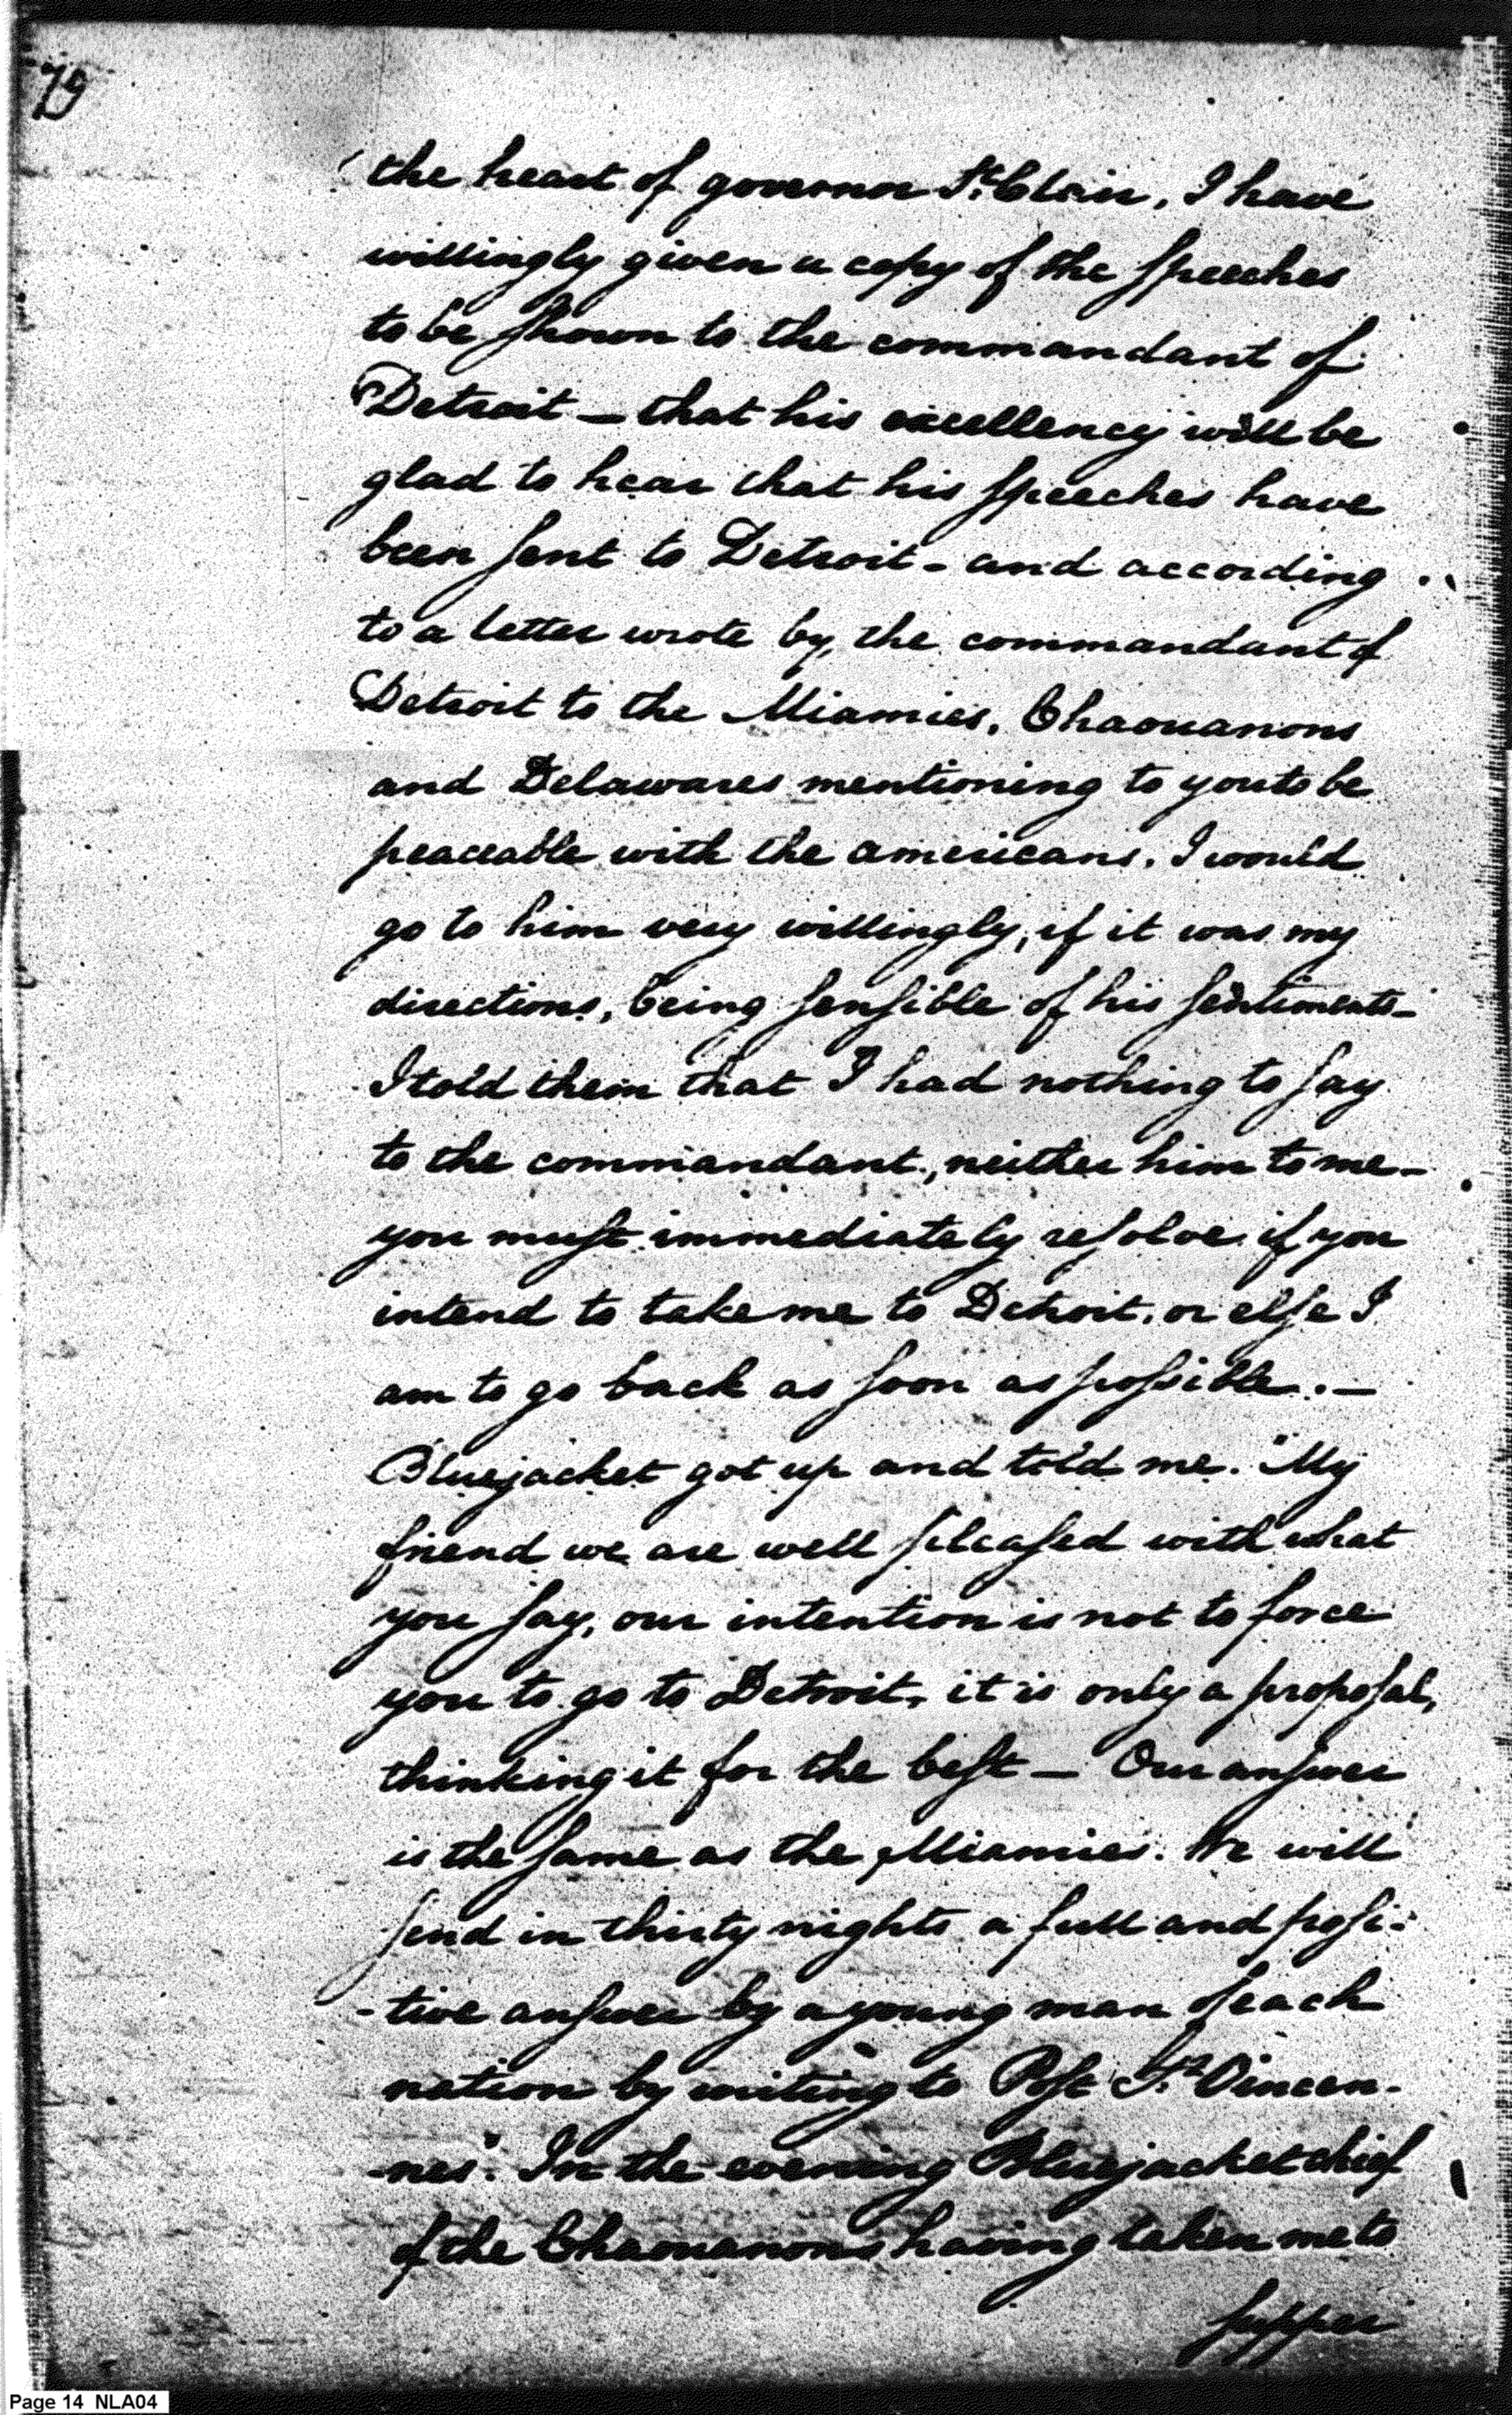 79
the heart of governor St. Clair, I have
willingly given a copy of the speeches
to be shown to the commandant of
Detroit — that his excellency will be
glad to hear that his speeches have
been sent to Detroit - and according
to a letter wrote by, the commandant of
Detroit to the Miamies, Chaouanons
and Delawares mentioning to you to be
peaceable with the americans. I would
go to him very willingly, if it was my
directions, being sensible of his sentiments —
I told them that I had nothing to say
to the commandant, neither him to me —
you must immediately resolve if you
intend to take me to Detroit, or else I
am to go back as soon as possible. —
Bluejacket got up and told me. "My
friend we are well pleased with what
you say, our intention is not to force
you to go to Detroit, it is only a proposal,
thinking it for the best — Our answer
is the same as the Miamies. We will
send in thirty nights a full and posi-
-tive answer by a young man of each
nation by writing to Post St. Vincen-
-nes". In the evening Bluejacket chief
of the Chaouanons having taken me to
supper
Page 14 NLA04